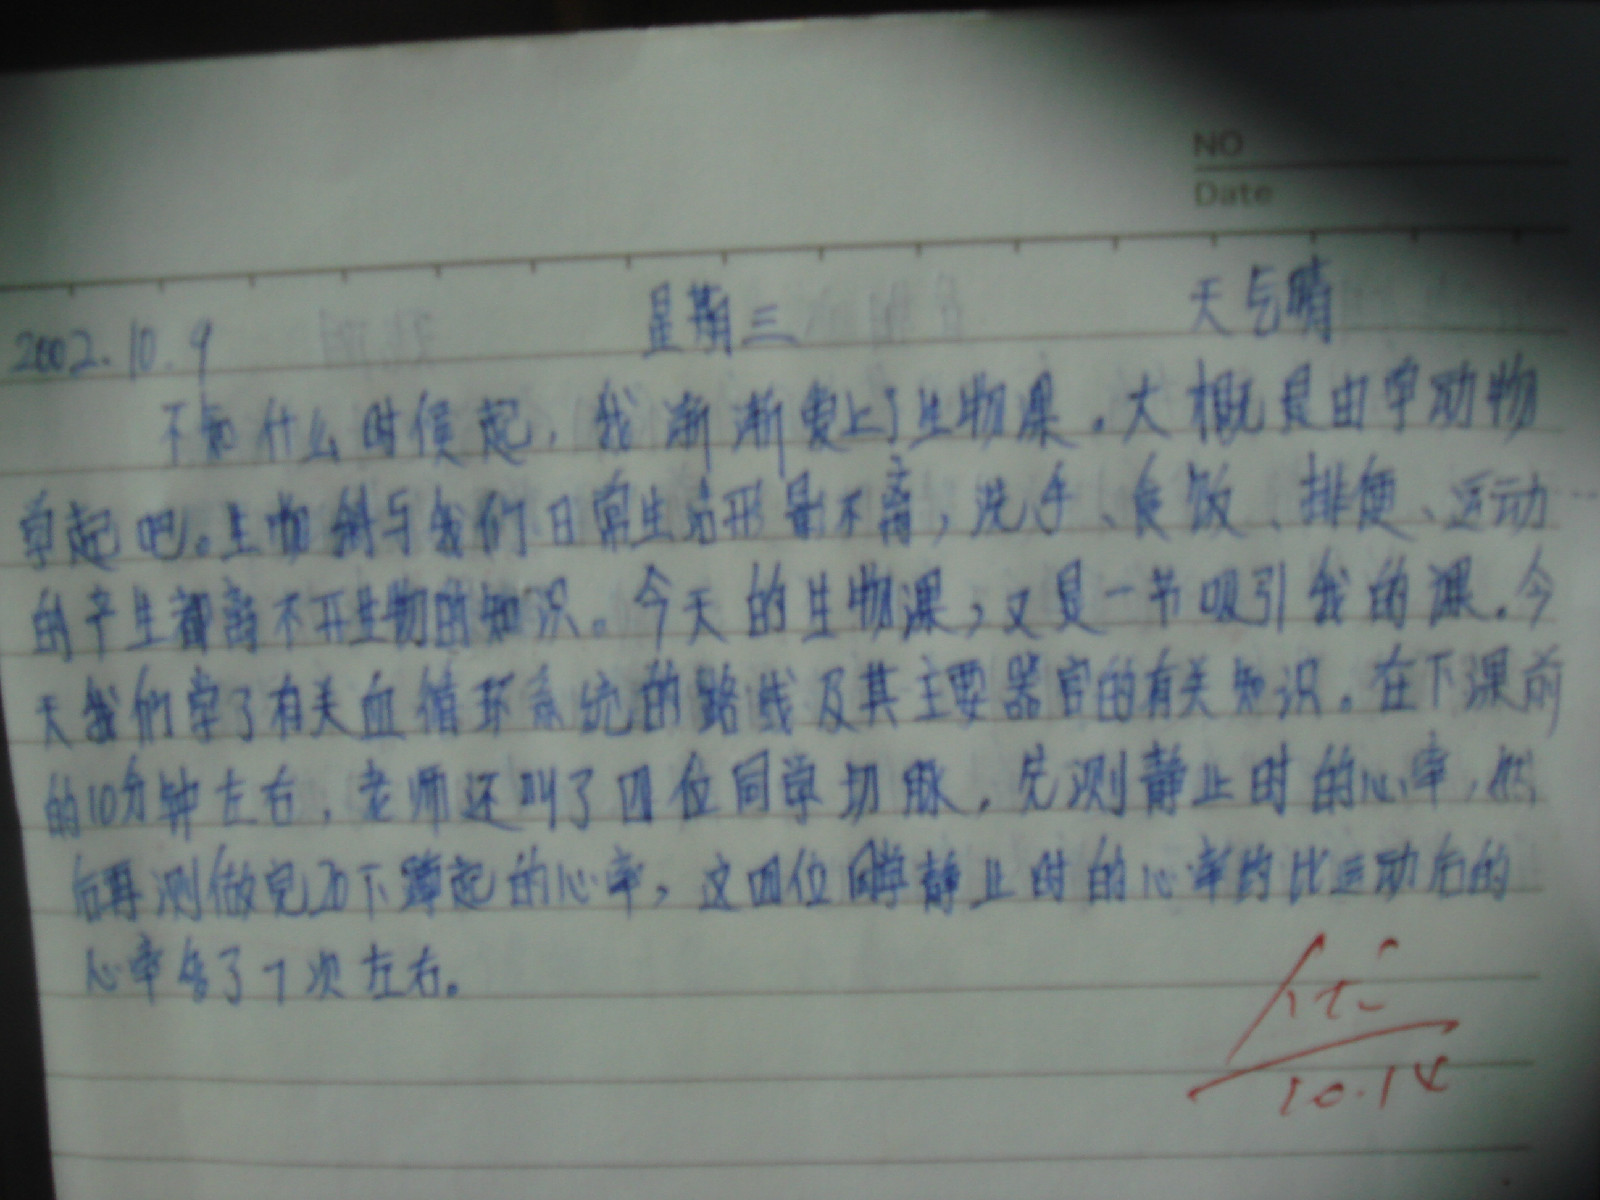 NO
Date
2002.10.9 星期三 天气晴
不知什么时候起，我渐渐爱上了生物课。大概是由学动物
学起吧。生物学与我们日常生活形影不离，洗手、食饭、排便、运动
的产生都离不开生物的知识。今天的生物课，又是一节吸引我的课。今
天我们学了有关血循环系统的路线及其主要器官的有关知识。在下课前
的10分钟左右，老师还叫了四位同学切脉，先测静止时的心率，然
后再测做完20下蹲起的心率，这四位同学静止时的心率约比运动后的
心率 了7次左右。
优
10.14